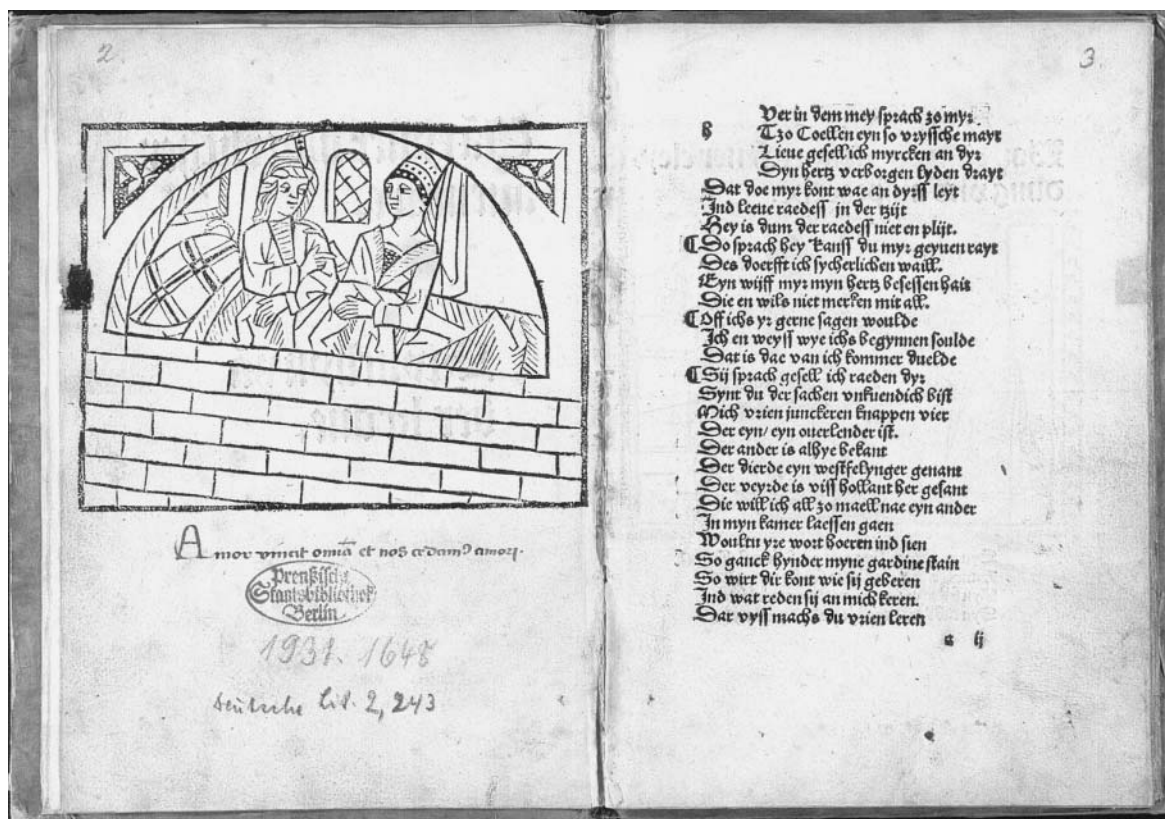 2
Amor vincit omīa et nos cedamꝰ amori.
Preußische
Staatsbibliothek
Berlin
1931. 1648
Deutsche Lit. 2, 243
3.
Ver in dem mey sprach zo myr
s Tzo Coellen eyn so vryssche mayt
Lieue gesell ich myrcken an dyr
Dyn hertz verborgen lyden drayt
Dat doe myr kont wae an dyrss leyt
Ind leene raedess in der tzijt
Hey is dum der raedess niet en plijt.
¶ Do sprach hey kanss du myr geyuen rayt
Des doerfft ich sycherlichen waill.
Eyn wijff myr myn hertz besessen hait
Die en wils niet merken mit all.
¶ Off ichs yr gerne sagen woulde
Ich en weyss wye ichs begynnen soulde
Dat is dae van ich kommer duelde
¶ Sij sprach gesell ich raeden dyr
Synt du der sachen vnkuendich bist
Mich vrien junckeren knappen vier
Der eyn/ eyn ouerlender ist.
Der ander is alhye bekant
Der dierde eyn westfelynger genant
Der veyrde is viss hollant her gesant
Die will ich all zo maell nae eyn ander
In myn kamer laessen gaen
Woultu yre wort hoeren ind sien
So ganck hynder myne gardine stain
So wirt dir kont wie sij geberen
Ind wat reden sij an mich keren.
Dar vyss machs du vrien leren
a ij